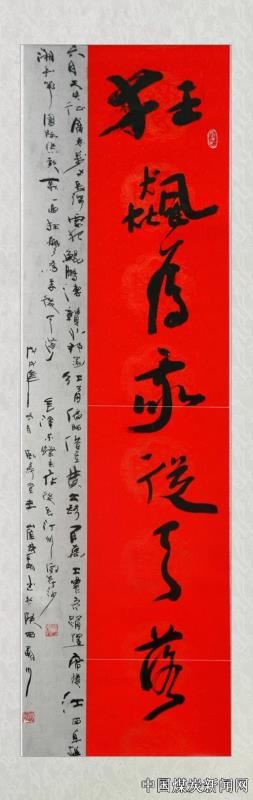 狂飆為我從天落
六月天兵征腐惡萬丈長纓要把鯤鵬縛贛水那邊紅一角偏師借重黃公略百萬工農齊踴躍席捲江西直搗
湘和鄂國際悲歌歌一曲狂飆為我從天落
毛澤東蝶戀花從汀州向長沙
中国煤炭新闻网